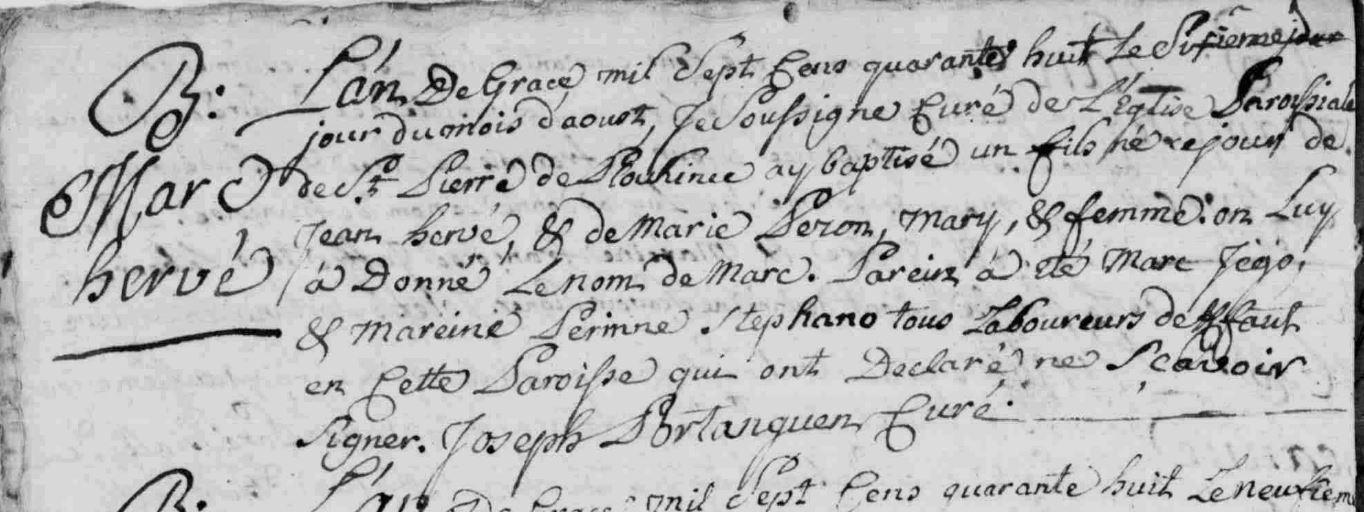 B: L'án De Grace mil Sept Cens quarante huit Le Sixieme jour
jour du mois d'aoust, Je Soussigne Curé de L'Eglise Paroissiale
Marc de St Pierre de Plouhince ay baptisé un fils né ce jour de
Jean hervé, & de Marie Peron, mary, & femme: on Luy
hervé à Donné Le nom de Marc. Parein à eté Marc Jégo,
& Mareine Perinne Stephano tous Laboureurs de
en Cette Paroisse qui ont Declaré ne Scavoir
Signer. Joseph Portanguen Curé.
B: L'án De Grace mil Sept Cens quarante huit Le neufiem